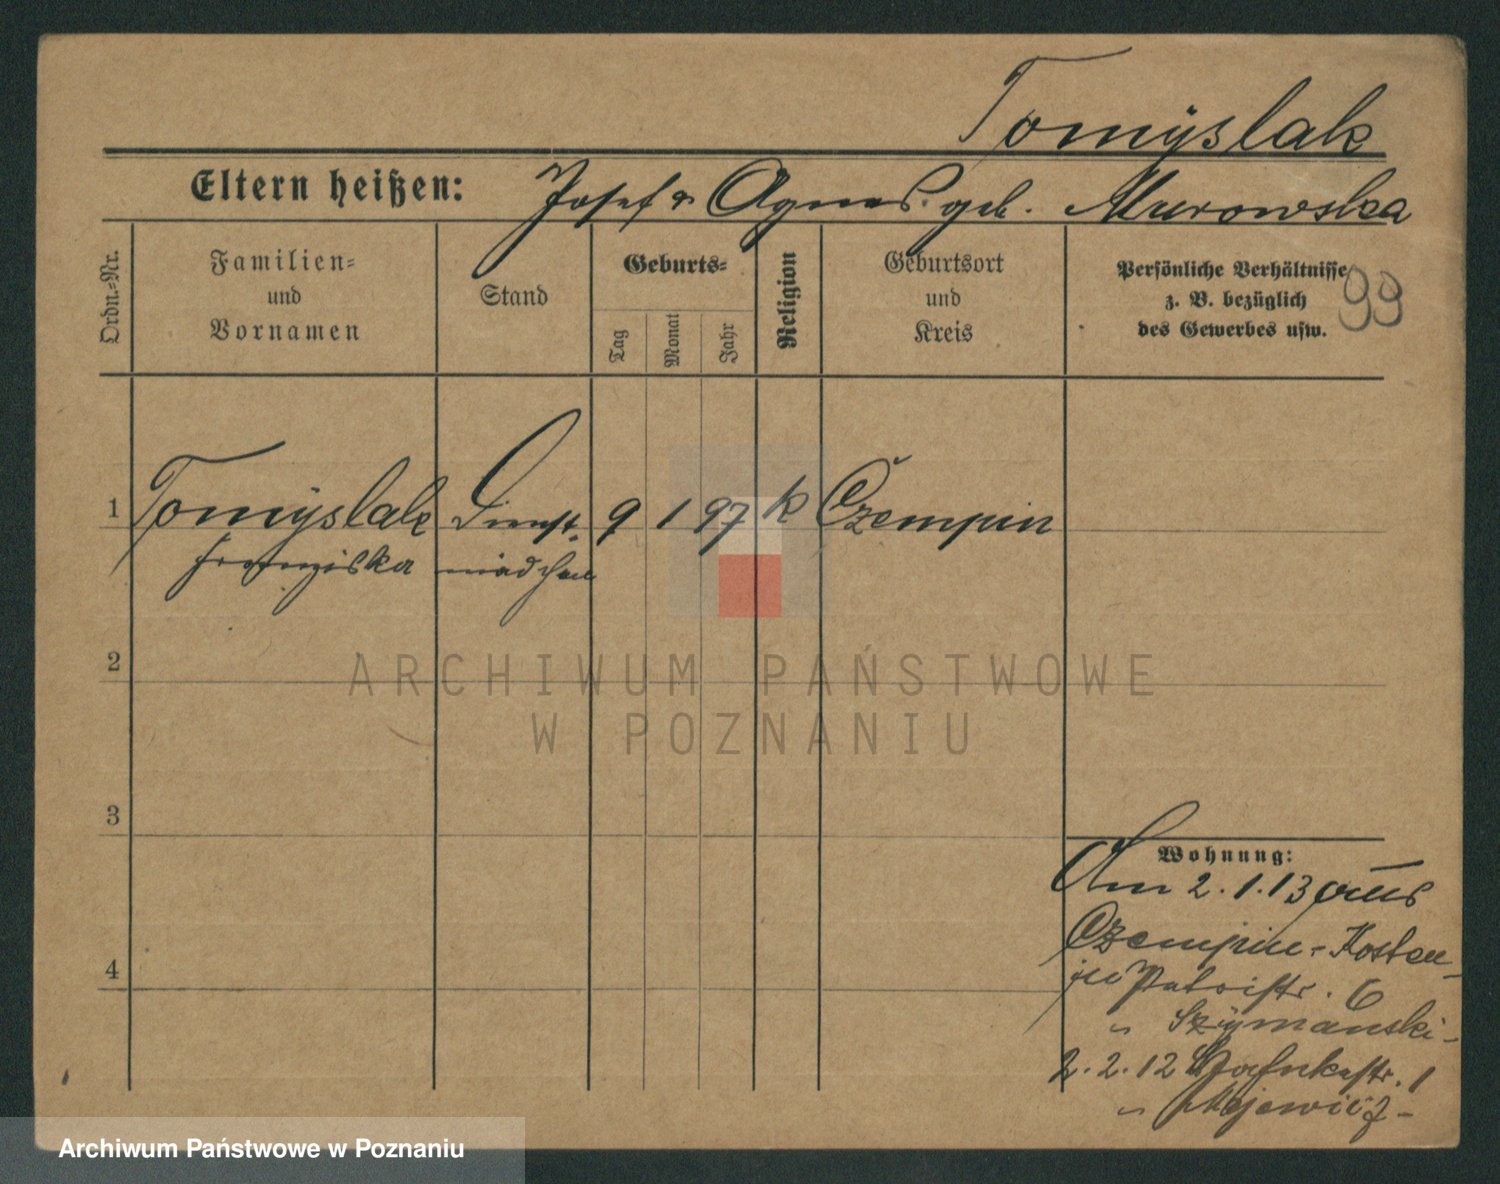 Tomÿslak
Eltern heißen: Josef & Agnes geb. Murowska
Ordn.-Nr.
Familien-
und
Vornamen
Stand
Geburts-
Tag
Monat
Jahr
Religion
Geburtsort
und
Kreis
Persönliche Verhältnisse
z. B. bezüglich
des Gewerbes usw.
99
1 Tomÿslak Dienst- 9 1 97 k Czempin
Franziska mädchen
2
ARCHIWUM PAŃSTWOWE
W POZNANIU
3
Wohnung:
Am 2.1.13 aus
Czempin - Kosten
zu 6
" Szÿmanski -
4
2.2.12 1
" Majewicz -
Archiwum Państwowe w Poznaniu